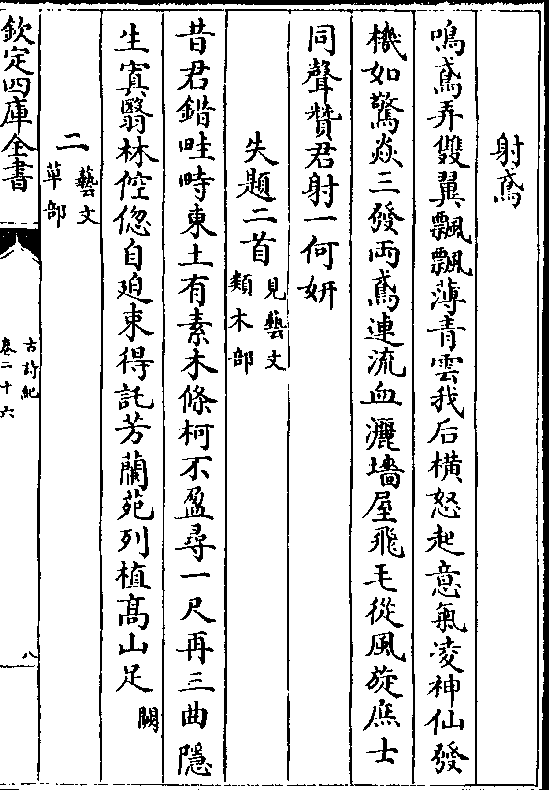 射鳶
鳴鳶弄雙翼飄飄薄青雲我后橫怒起意氣凌神仙發
機如驚焱三發兩鳶連流血灑墻屋飛毛從風旋庶士
同聲贊君射一何妍
失題二首見藝文類木部
昔君錯畦畤東土有素木條柯不盈尋一尺再三曲隱
生寘翳林倥偬自迫束得託芳蘭苑列植髙山足闕
二藝文草部
欽定四庫全書
古詩紀
卷二十六
八